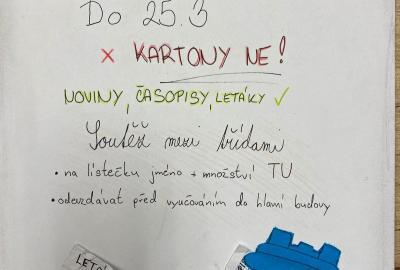 Do 25.3
× KARTONY NE!
NOVINY, ČASOPISY, LETÁKY ✓
Soutěž mezi třídami
• na lístečku jméno + množství TU
• odevzdávat před vyučováním do hlavní budovy
LETÁ